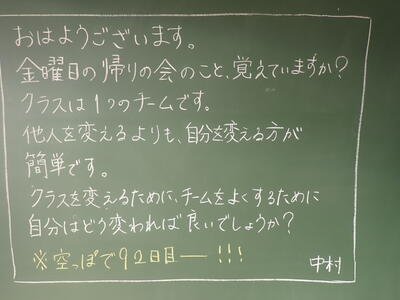 おはようございます。
金曜日の帰りの会のこと、覚えていますか?
クラスは1つのチームです。
他人を変えるよりも、自分を変える方が
簡単です。
クラスを変えるために、チームをよくするために
自分はどう変われば良いでしょうか?
※空っぽで92日目ー!!!
中村